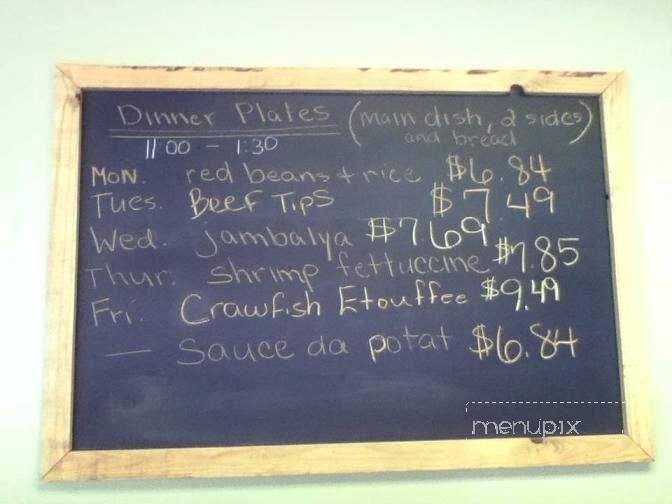 Dinner Plates (Main dish, 2 sides and bread)
11:00 - 1:30
MON. red beans + rice $6.84
Tues. Beef Tips $7.49
Wed. jambalya $7.69
Thur. shrimp fettuccine $7.85
Fri. Crawfish Etouffee $9.49
— Sauce da potat $6.84
menupix